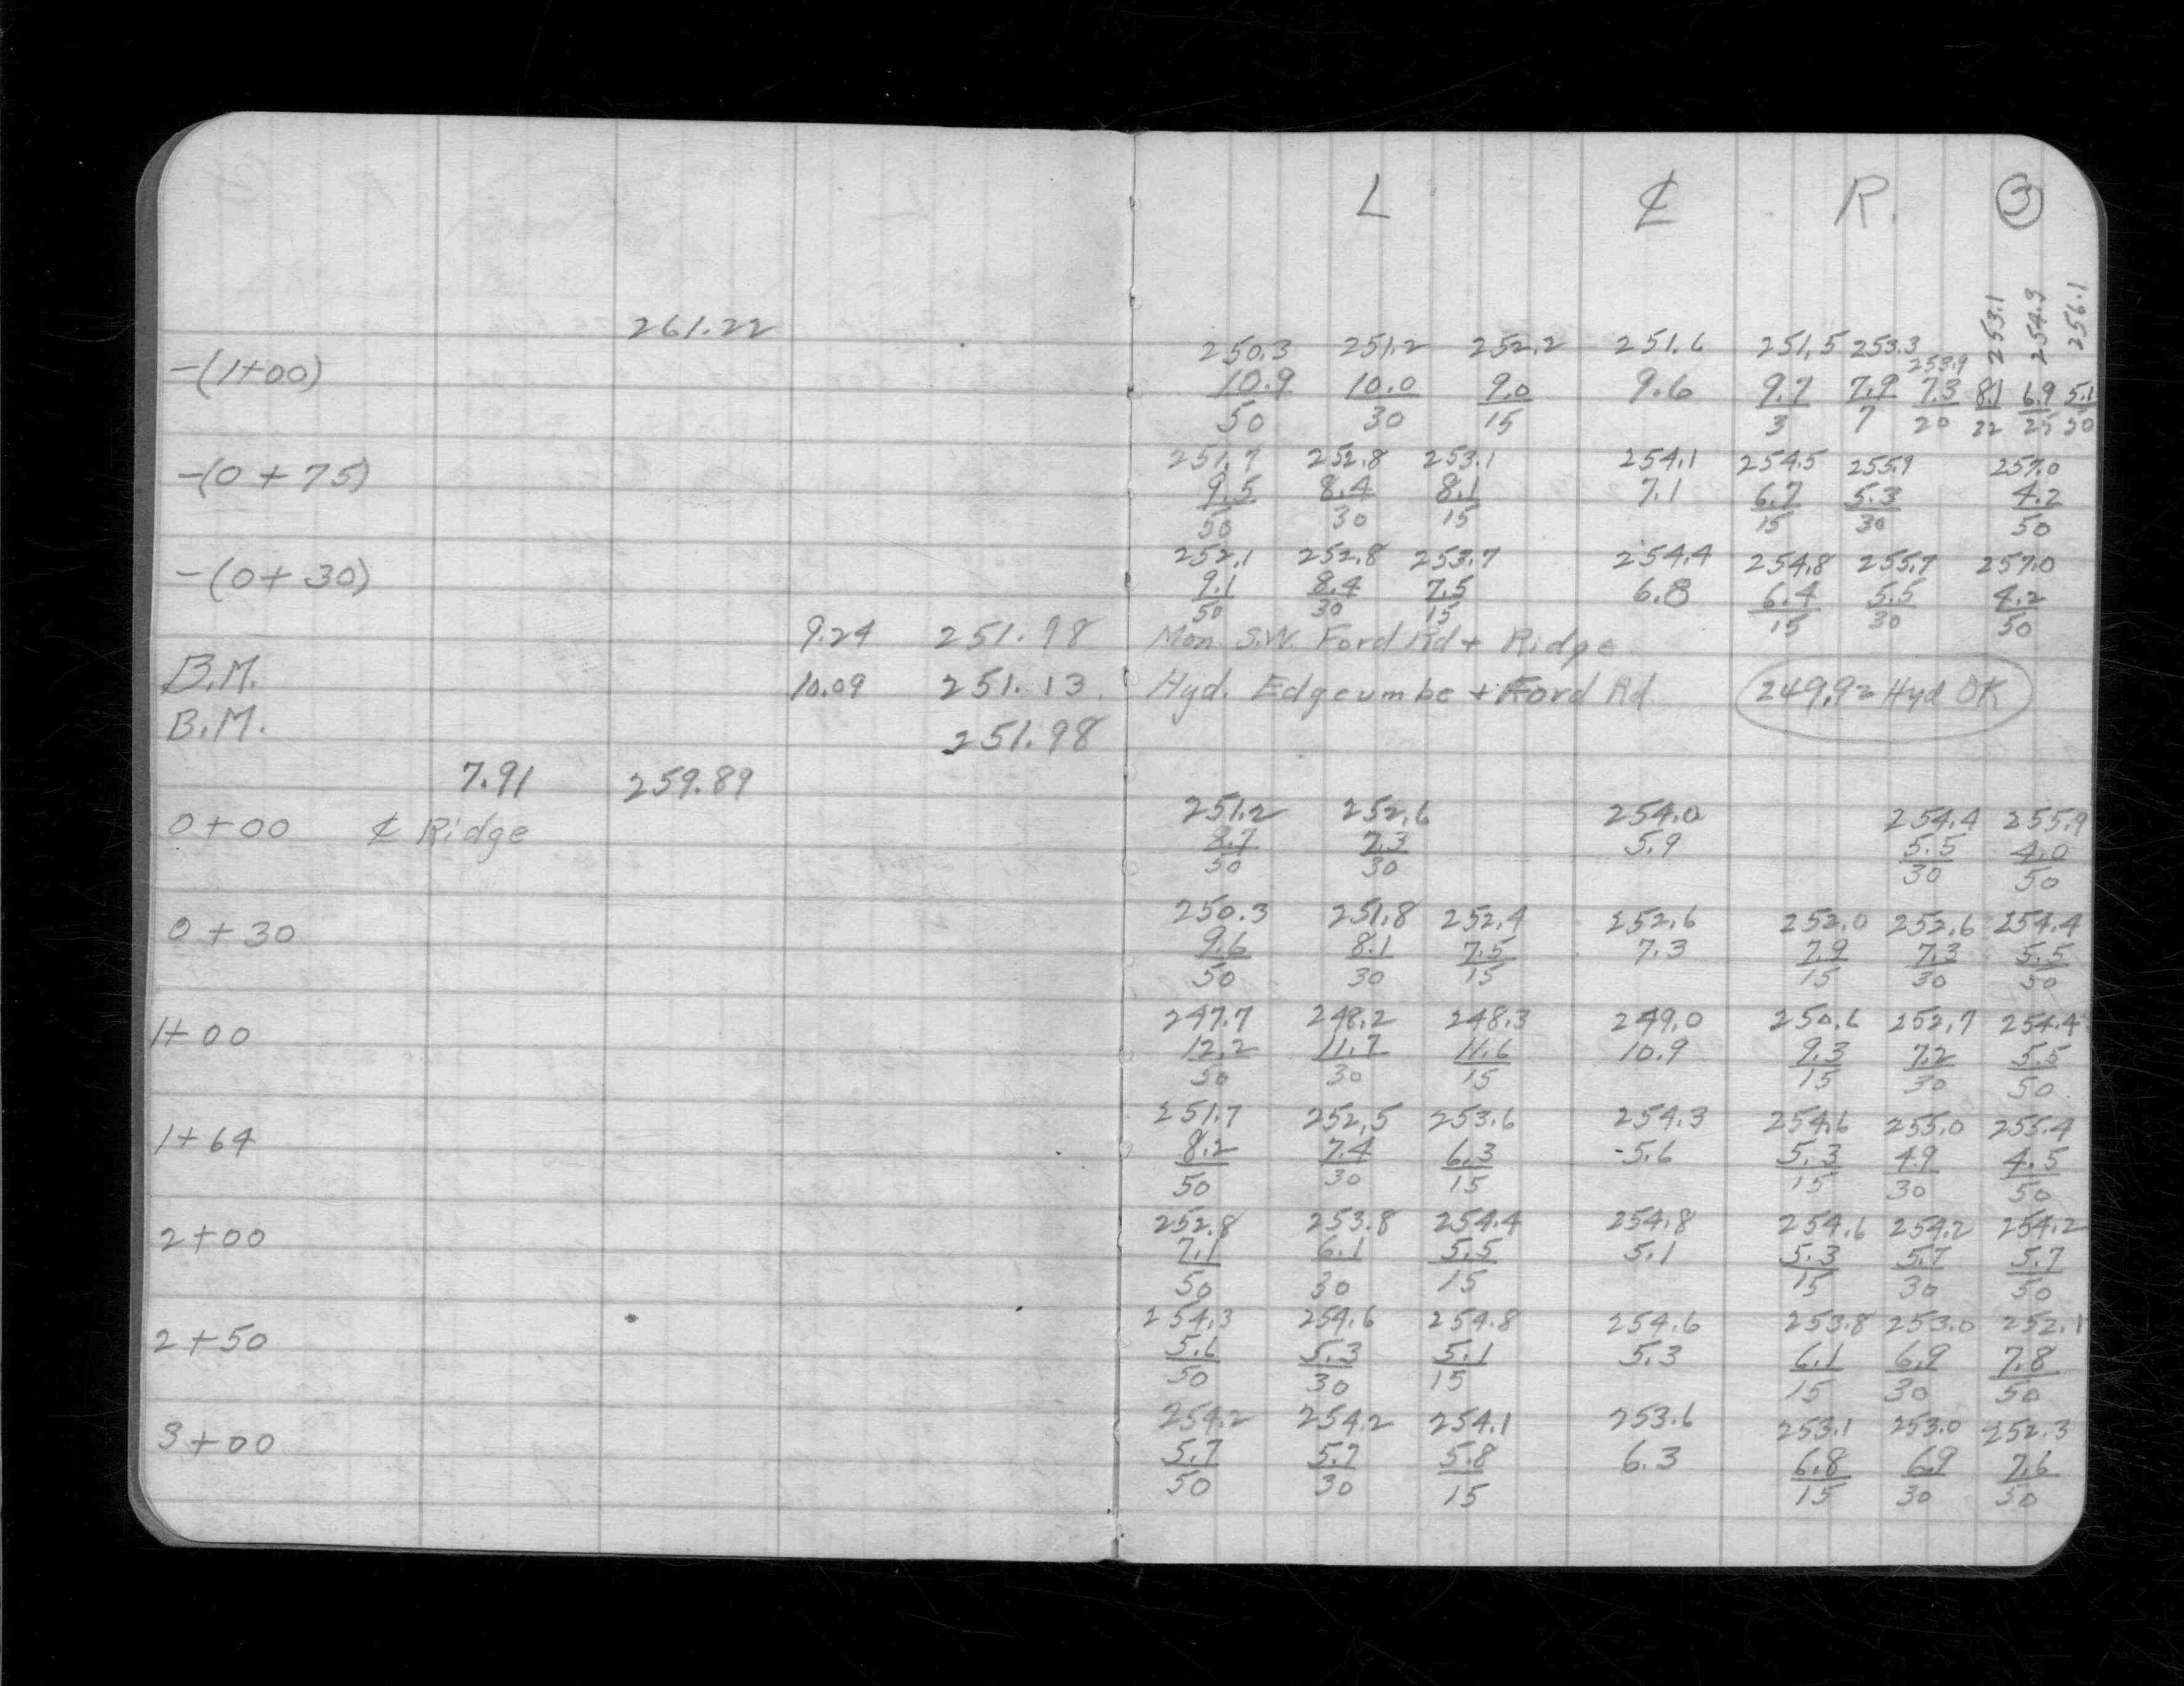 L ℄ R. 3
261.22
253.1 254.3 256.1
250.3 251.2 252.2 251.6 251.5 253.3 253.9
-(1+00) 10.9 10.0 9.0 9.6 9.7 7.9 7.3 8.1 6.9 5.1
50 30 15 3 7 20 22 25 50
251.7 252.8 253.1 254.1 254.5 255.9 257.0
-(0+75) 9.5 8.4 8.1 7.1 6.7 5.3 4.2
50 30 15 15 30 50
252.1 252.8 253.7 254.4 254.8 255.7 257.0
-(0+30) 9.1 8.4 7.5 6.8 6.4 5.5 4.2
50 30 15 15 30 50
9.24 251.98 Mon. S.W. Ford Rd + Ridge
B.M. 10.09 251.13. Hyd. Edgcumbe + Ford Rd. 249.92 Hyd OK
B.M. 251.98
7.91 259.89
251.2 252.6 254.0 254.4 255.9
0+00 ℄ Ridge 8.7 7.3 5.9 5.5 4.0
50 30 30 50
250.3 251.8 252.4 252.6 252.0 252.6 254.4
0+30 9.6 8.1 7.5 7.3 7.9 7.3 5.5
50 30 15 15 30 50
247.7 248.2 248.3 249.0 250.6 252.7 254.4
1+00 12.2 11.7 11.6 10.9 9.3 7.2 5.5
50 30 15 15 30 50
251.7 252.5 253.6 254.3 254.6 255.0 255.4
1+64 8.2 7.4 6.3 5.6 5.3 4.9 4.5
50 30 15 15 30 50
252.8 253.8 254.4 254.8 254.6 254.2 254.2
2+00 7.1 6.1 5.5 5.1 5.3 5.7 5.7
50 30 15 15 30 50
254.3 254.6 254.8 254.6 253.8 253.0 252.1
2+50 5.6 5.3 5.1 5.3 6.1 6.9 7.8
50 30 15 15 30 50
254.2 254.2 254.1 253.6 253.1 253.0 252.3
3+00 5.7 5.7 5.8 6.3 6.8 6.9 7.6
50 30 15 15 30 50